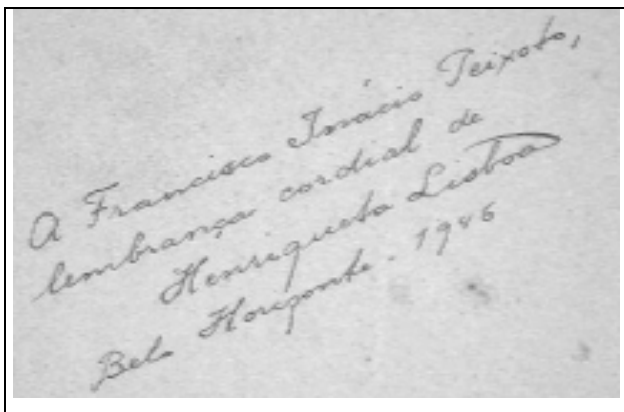 A Francisco Inácio Peixoto,
lembrança cordial de
Henriqueta Lisboa
Belo Horizonte - 1946